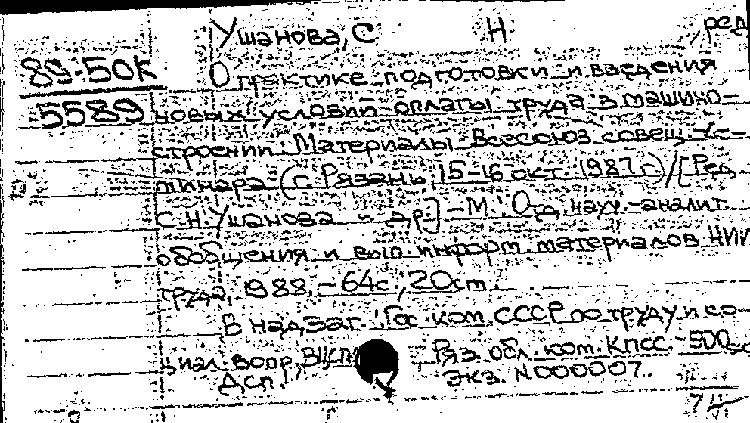 Ушанова, С Н , ред
89-50К О практике подготовки и введения
5589 новых условий оплаты труда в машино-
строении: Материалы Всесоюз совещ. се-
минара (г. Рязань, 15-16 окт. 1987 г.) / [Ред.
С.Н. Ушанова и др.] - М.: Отд. науч.-аналит.
обобщения и вып информ. материалов НИИ
труда, 1988. - 64с, 20см.
В надзаг.: Гос. ком. СССР по труду и со-
циал. вопр., , Ряз. обл. ком. КПСС - 500
Дсп! экз. N000007.